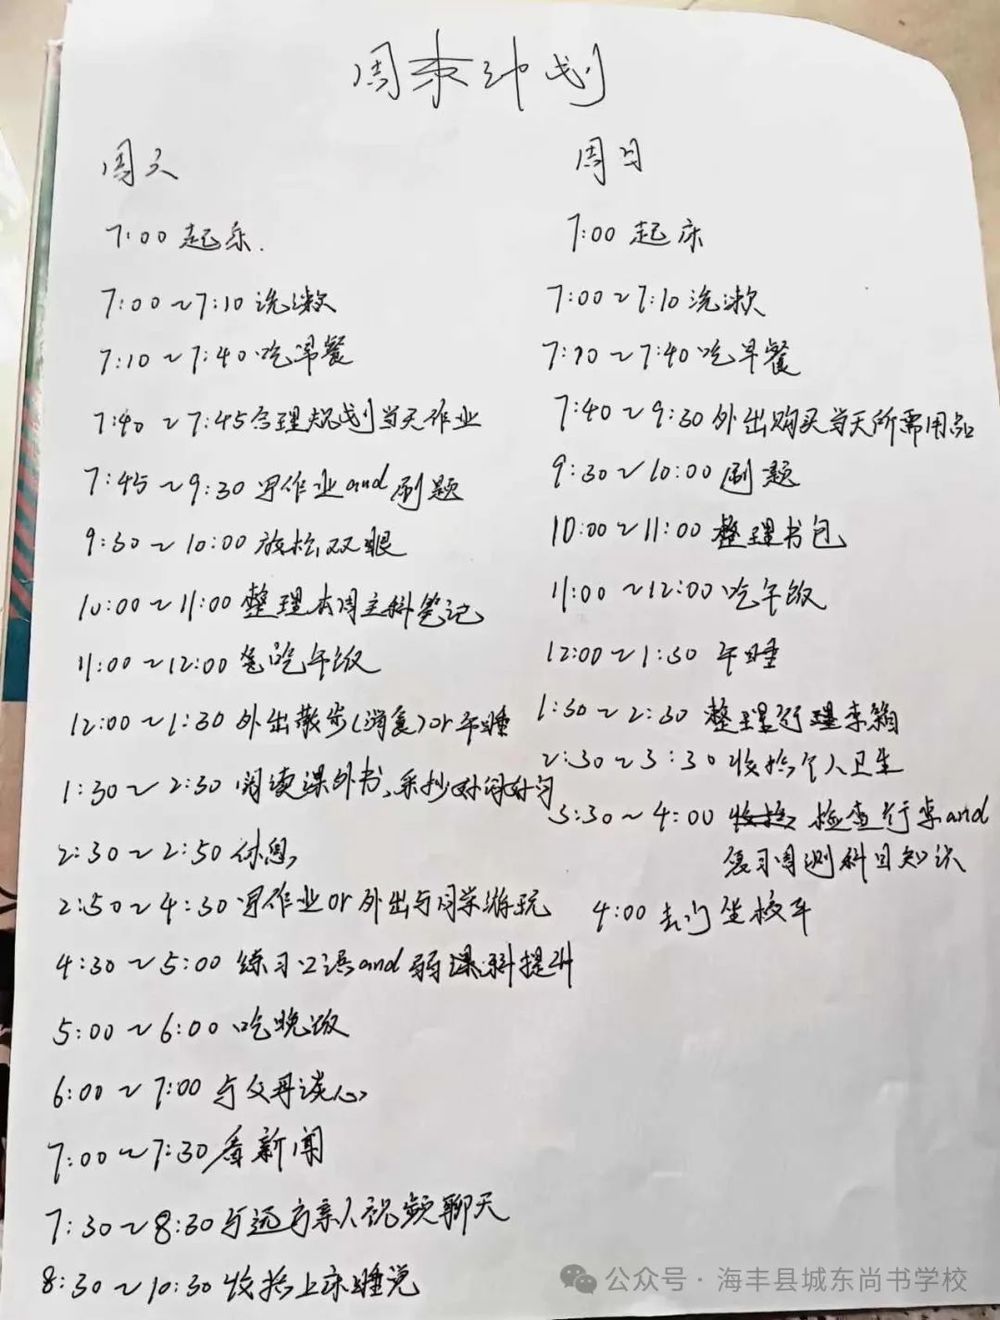 周末计划
周天
7:00 起床.
7:00~7:10 洗漱
7:10~7:40 吃早餐
7:40~7:45 合理规划当天作业
7:45~9:30 写作业and刷题
9:30~10:00 放松双眼
10:00~11:00 整理本周主科笔记
11:00~12:00 吃午饭
12:00~1:30 外出散步(消食)or午睡
1:30~2:30 阅读课外书、采抄好词好句
2:30~2:50 休息
2:50~4:30 写作业or外出与同学游玩
4:30~5:00 练习口语and弱课科提升
5:00~6:00 吃晚饭
6:00~7:00 与父母谈心
7:00~7:30 看新闻
7:30~8:30 与远方亲人视频聊天
8:30~10:30 收拾上床睡觉
周日
7:00 起床
7:00~7:10 洗漱
7:10~7:40 吃早餐
7:40~9:30 外出购买当天所需用品
9:30~10:00 刷题
10:00~11:00 整理书包
11:00~12:00 吃午饭
12:00~1:30 午睡
1:30~2:30 整理行理李箱
2:30~3:30 收拾个人卫生
3:30~4:00 收拾 检查行李and
复习周测科目知识
4:00 去坐校车
公众号·海丰县城东尚书学校